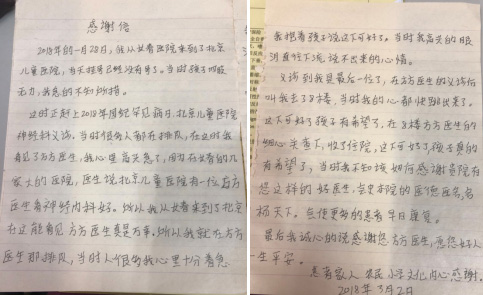 感谢信
2018年的一月28日,我从长春医院来到了北京
儿童医院,当天挂号已经没有号了。当时孩子四肢
无力,我急的不知所措。
这时正赶上2018年国纪罕见病日,北京儿童医院
神经科义诊,当时很多人都在排队,在这时我
看见了方方医生,我心里高兴急了,因为在长春的几
家大的医院,医生说北京儿童医院有一位方方
医生看神经内科好。所以我从长春来到了北京
在这能看见方方医生真是万幸。所以我就在方方
医生那排队,当时人很多我心里十分着急
我抱着孩子说这下可好了。当时我高兴的眼
泪直往下流,说不出来的心情。
义诊到我是最后一位了,在方方医生的义诊后
叫我去了8楼,当时我的心都快跳出来了。
这下可好了孩子有希望了,在8楼方方医生的
细心关查下,收了住院,这下可好了,孩子真的
有希望了,当时我不知该如何感谢贵院有
您这样的好医生,会使本院的医德医名名
杨天下。会使更多的患者早日康复。
最后我诚心的说感谢您方方医生,祝您好人
一生平安。
患者家人 农民 小学文化 内心感谢。
2018年3月2日